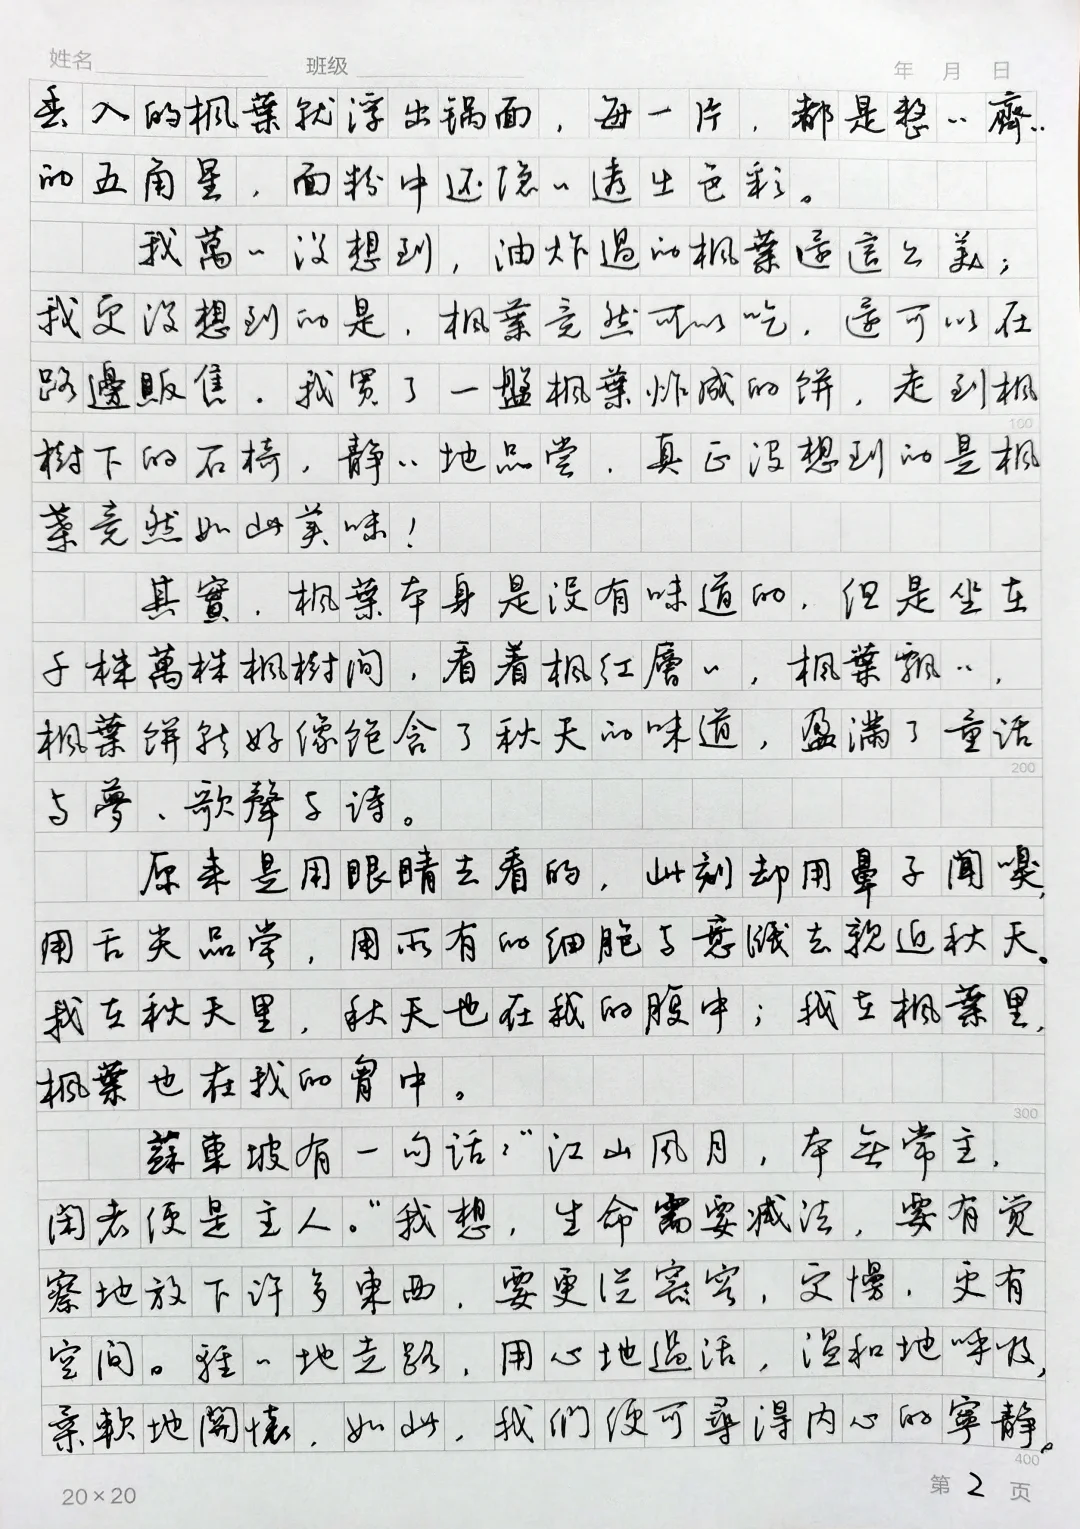 姓名 班级 年 月 日
丢入的枫葉就浮出锅面，每一片，都是整〃齊〃
的五角星，面粉中还隐〃透出色彩。
我萬一没想到，油炸過的枫葉還這么美；
我更没想到的是，枫葉竟然可以吃，還可以在
路邊販售。我買了一盤枫葉炸成的餅，走到枫
樹下的石椅，静〃地品尝，真正没想到的是枫
葉竟然如此美味！
其實，枫葉本身是没有味道的，但是坐在
千株萬株枫樹间，看着枫红層〃，枫葉飘〃，
枫葉餅就好像饱含了秋天的味道，盈满了童话
与夢、歌聲与诗。
原来是用眼睛去看的，此刻却用鼻子闻嗅，
用舌尖品尝，用所有的细胞与意識去親近秋天。
我在秋天里，秋天也在我的腹中；我在枫葉里，
枫葉也在我的胃中。
蘇東坡有一句话：“江山风月，本無常主，
闲者便是主人。”我想，生命需要减法，要有觉
察地放下许多東西，要更從容，更慢，更有
空间。〃地走路，用心地過活，温和地呼吸，
柔軟地開懷，如此，我们便可尋得内心的寧静。
100
200
300
400
20×20 第 2 页